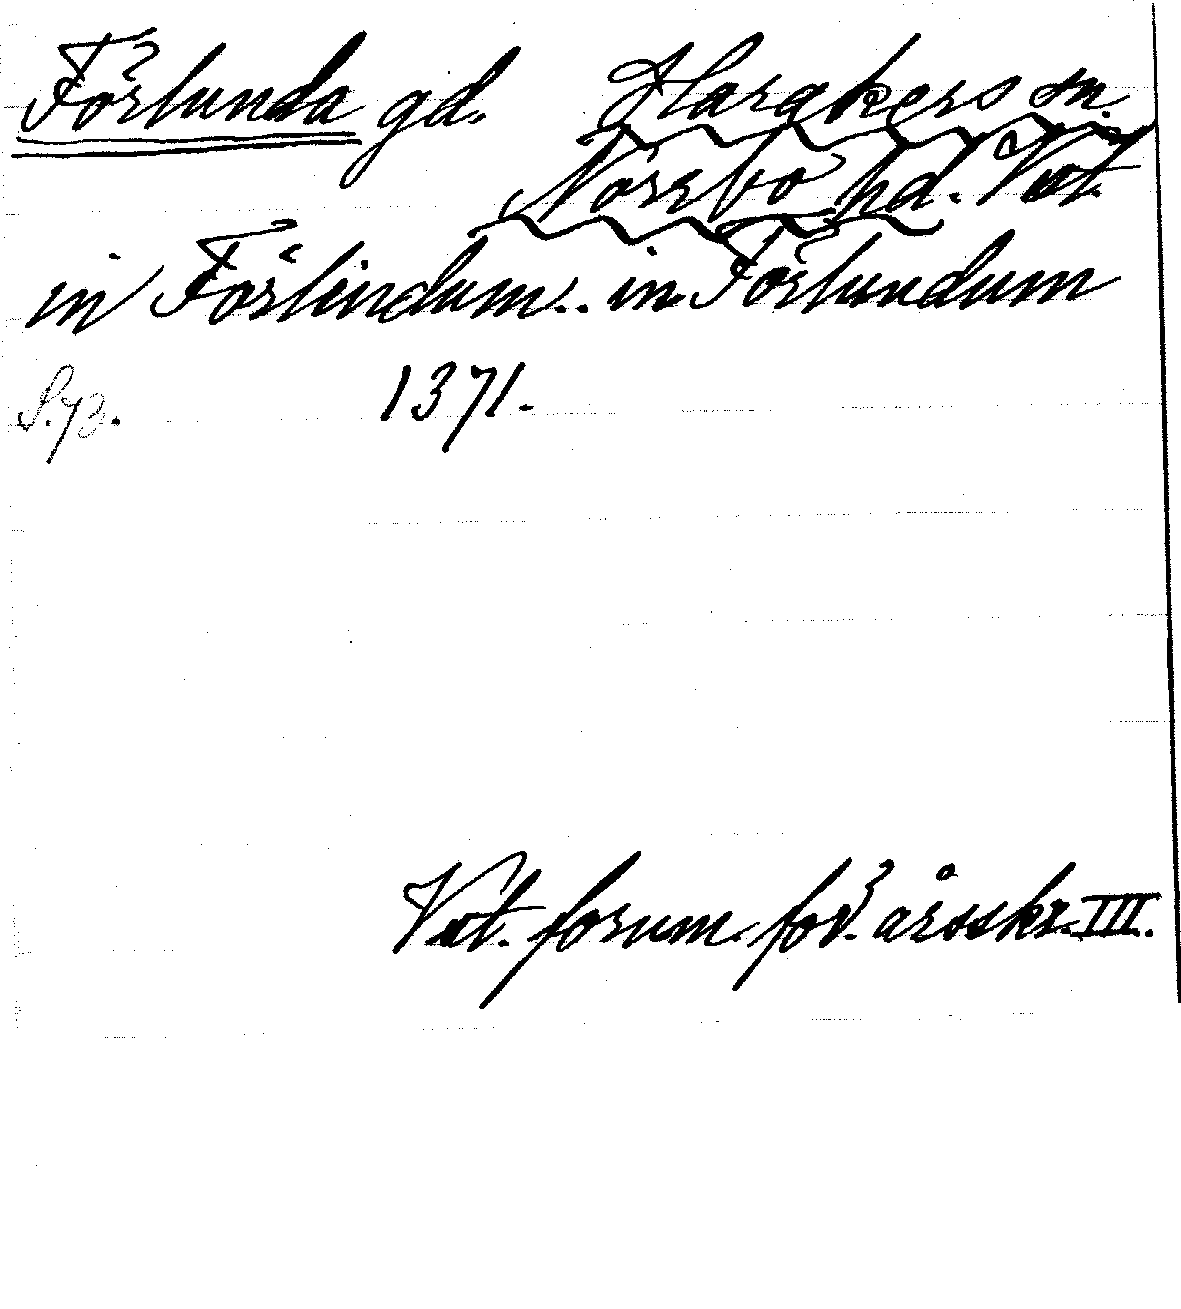 Förlunda gd. Hargkers sn.
Norrbo hd. Vst.
in Förlindum.. in Förlundum
S.73. 1371.
Vst. forum. förd. årsskr. III.